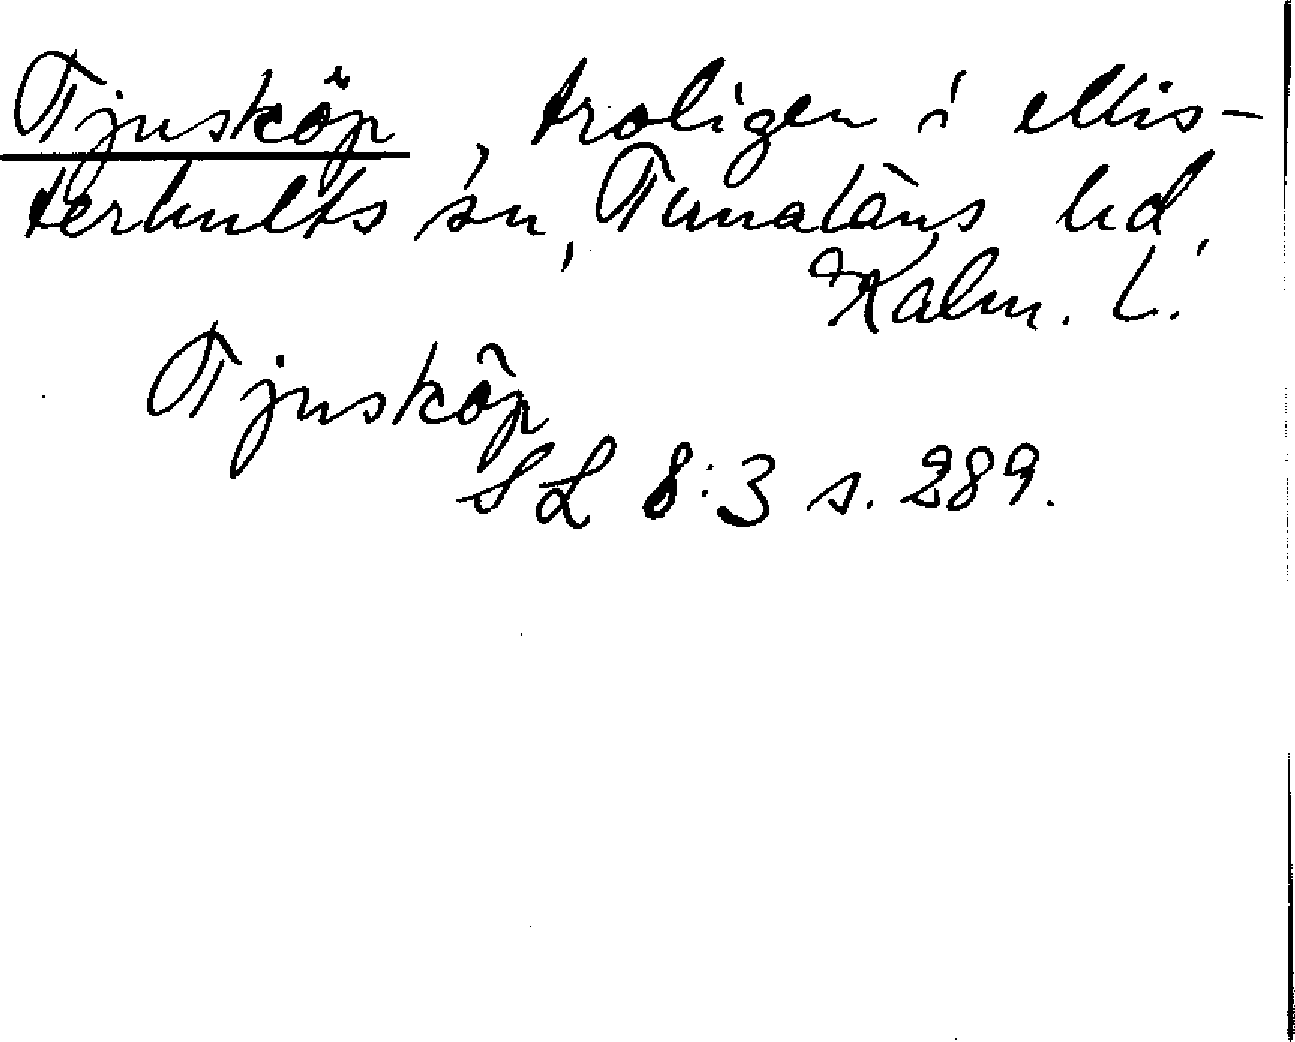 Tjusköp, troligen i Mis-
terhults sn, Tunaläns hd,
Kalm. L.
Tjusköp
SL 8:3 s. 289.